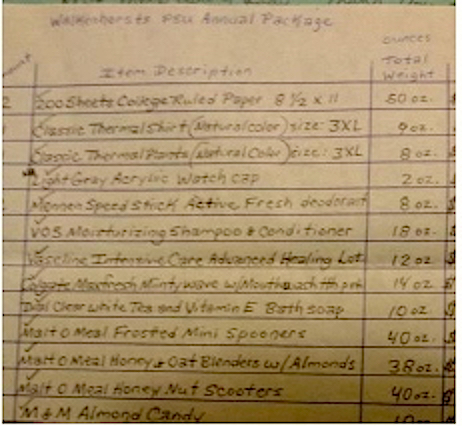 Walkenhorsts PSU Annual Package
ounces
Total
Item Description
Weight
2 200 Sheets College Ruled Paper 8 1/2 x 11 50 oz.
Classic Thermal Shirt (Natural color) size: 3XL 9 oz.
Classic Thermal Pants (Natural Color) size: 3XL 8 oz.
Light Gray Acrylic Watch cap 2 oz.
Mennen Speed Stick Active Fresh deodorant 8 oz.
VO5 Moisturizing Shampoo & Conditioner 18 oz.
Vaseline Intensive Care Advanced Healing Lot. 12 oz
Colgate Maxfresh Mintywave w/Mouthwash 14 oz
Dial Clear white Tea and Vitamin E Bath soap 10 oz.
Malt O Meal Frosted Mini Spooners 40 oz.
Malt O Meal Honey & Oat Blenders w/ Almonds 38 oz.
Malt O Meal Honey Nut Scooters 40 oz.
M&M Almond Candy